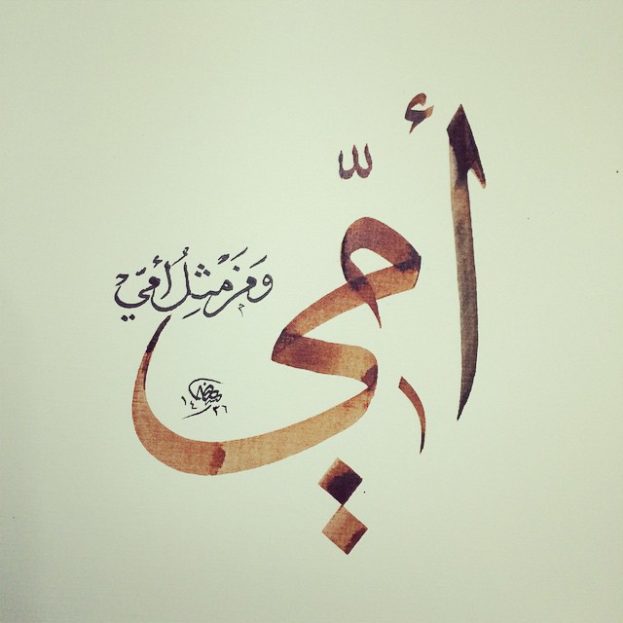 أمّي
وَمَن مِثلُ أمّي
١٤٣٦